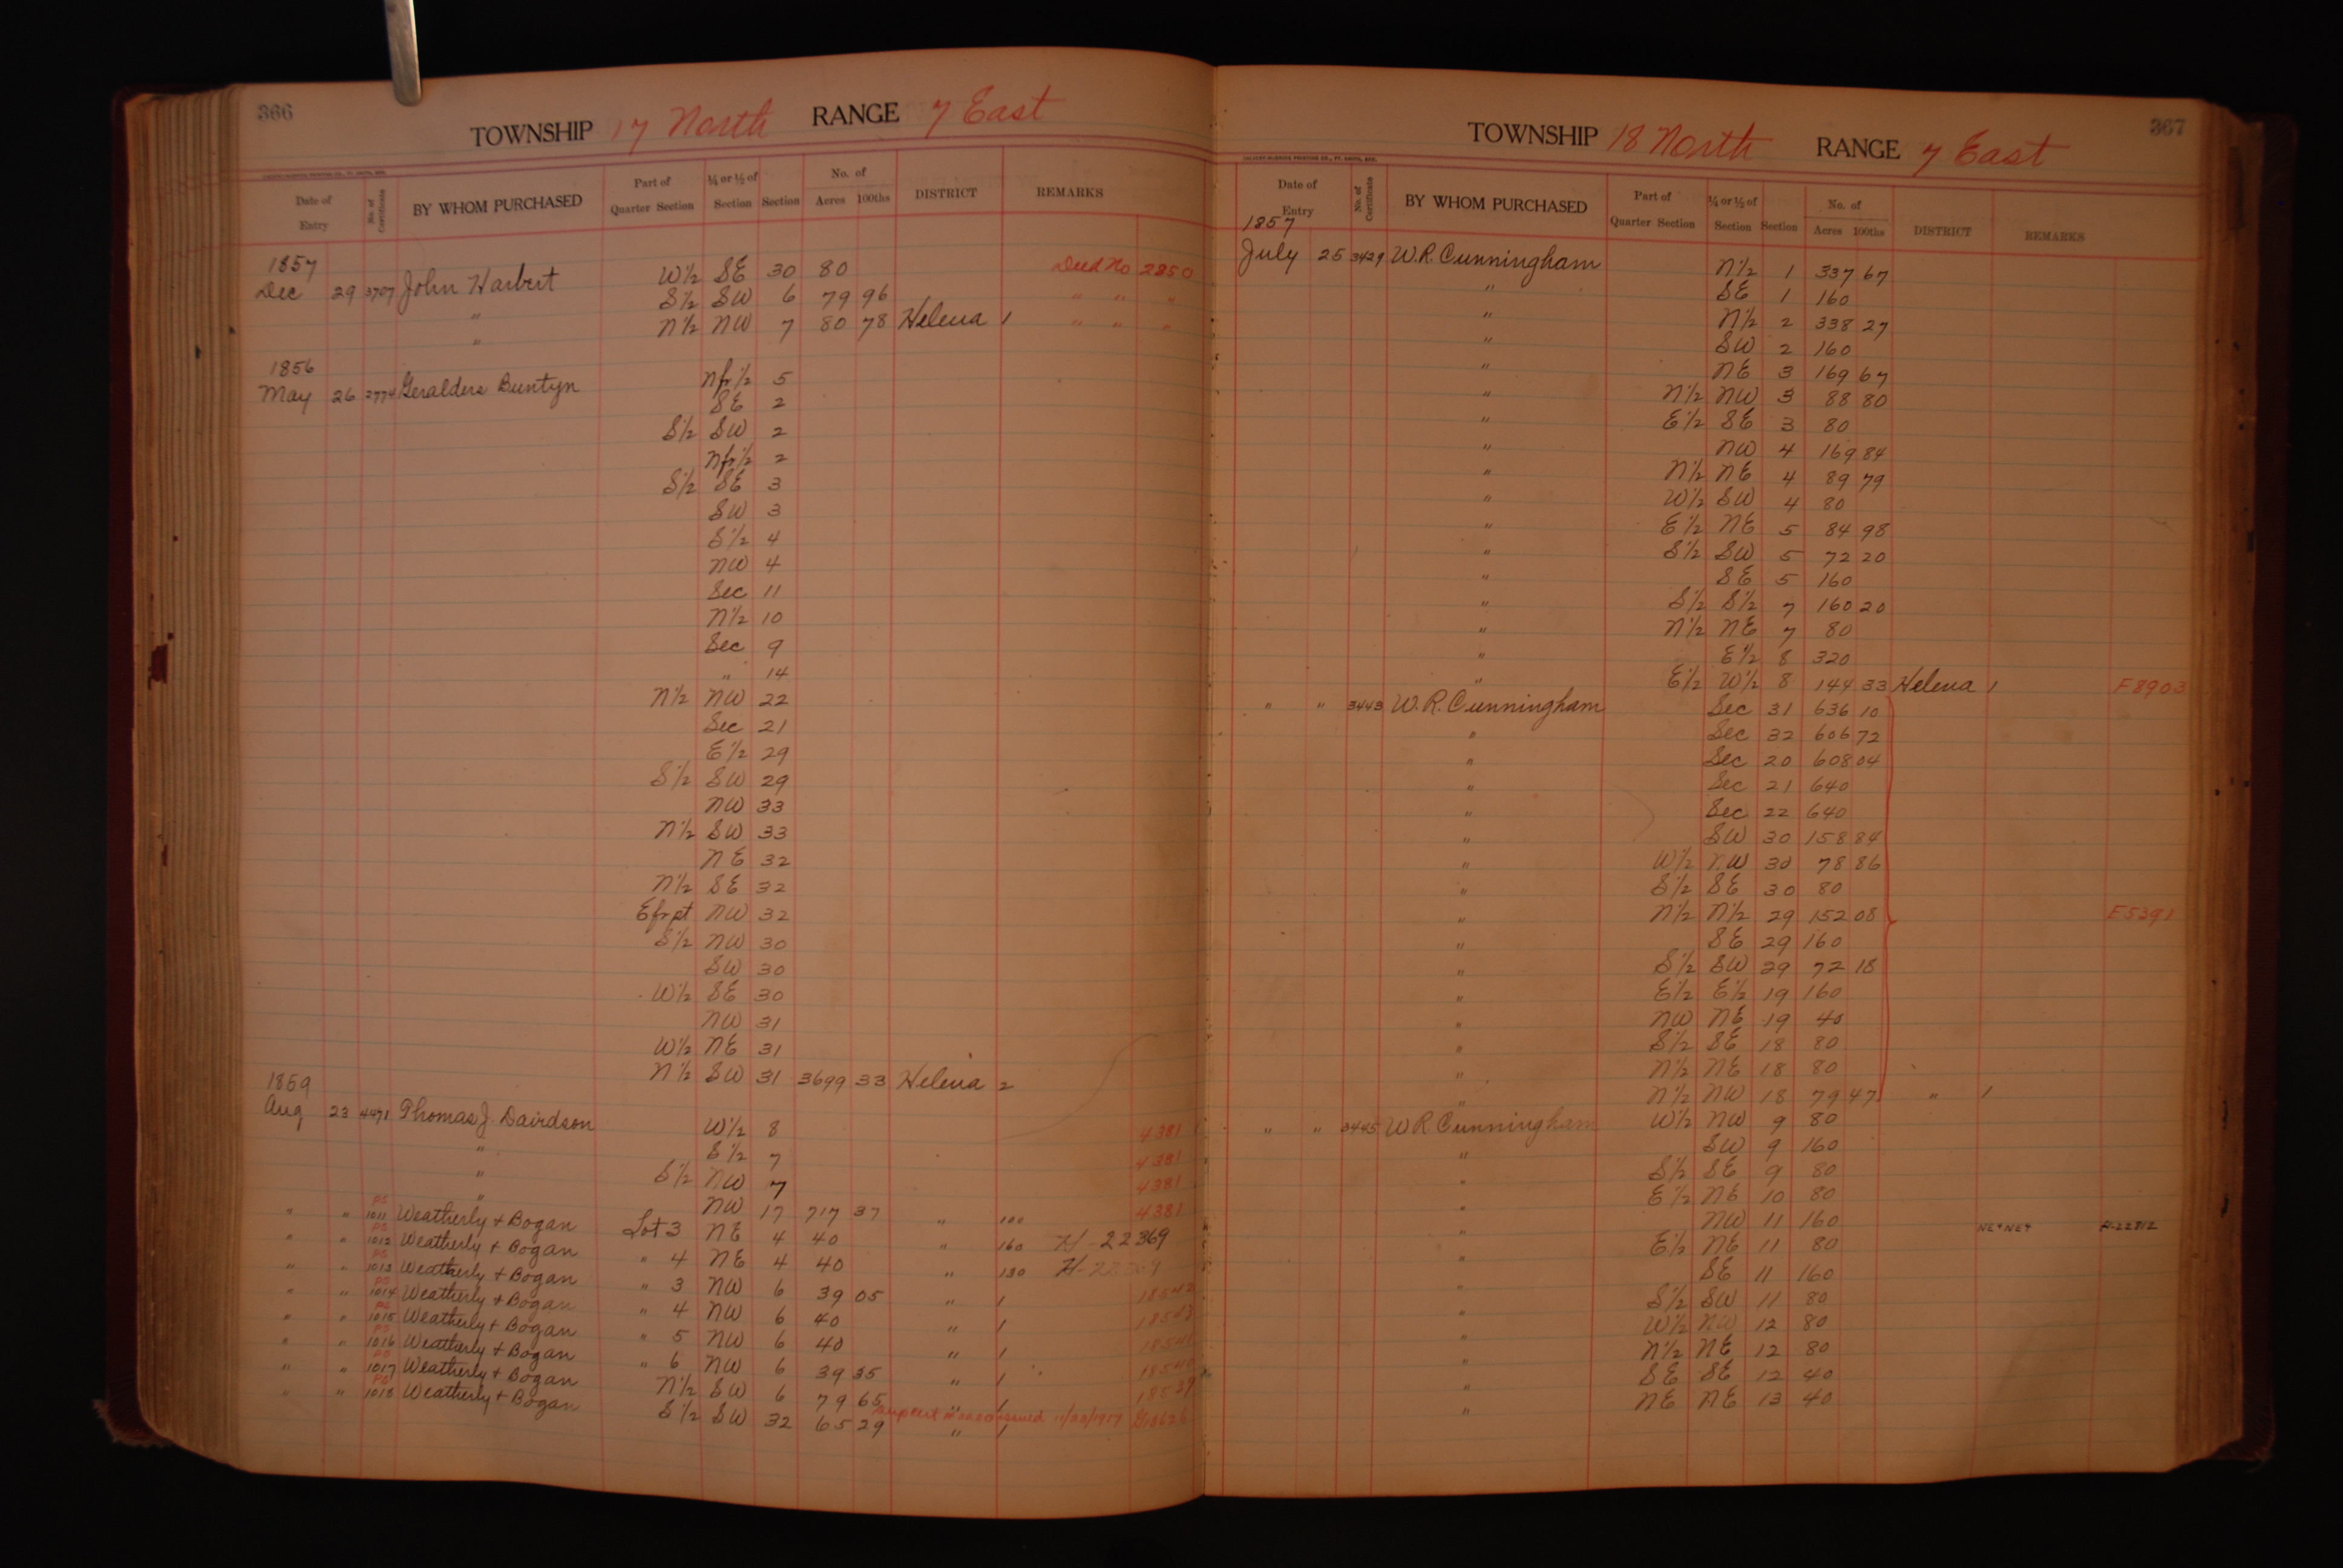 366
TOWNSHIP 17 North RANGE 7 East
Date of Entry No. of Certificate BY WHOM PURCHASED Part of Quarter Section ¼ or ½ of Section Section No. of Acres 100ths DISTRICT REMARKS
1857
Dec 29 3707 John Harbert W½ SE 30 80 Deed No 2350
" S½ SW 6 79 96 " " "
" N½ NW 7 80 78 Helena 1 " " "
1856
May 26 2774 Geralders Buntyn Nfr½ 5
SE 2
S½ SW 2
Nfr½ 2
S½ SE 3
SW 3
S½ 4
NW 4
Sec 11
N½ 10
Sec 9
" 14
N½ NW 22
Sec 21
E½ 29
S½ SW 29
NW 33
N½ SW 33
NE 32
N½ SE 32
Efrpt NW 32
S½ NW 30
SW 30
W½ SE 30
NW 31
W½ NE 31
N½ SW 31 3699 33 Helena 2
1859
Aug 23 4471 Thomas J. Davidson W½ 8 4381
" E½ 7 4381
" S½ NW 7 4381
" NW 17 717 37 " 4381
" " PS 1011 Weatherly + Bogan Lot 3 NE 4 40 " 160 H-22369
" " PS 1012 Weatherly + Bogan " 4 NE 4 40 " 130
" " PS 1013 Weatherly + Bogan " 3 NW 6 39 05 " 1 18542
" " PS 1014 Weatherly + Bogan " 4 NW 6 40 " 1 18543
" " PS 1015 Weatherly + Bogan " 5 NW 6 40 " 1
" " PS 1016 Weatherly + Bogan " 6 NW 6 39 35 " 1
" " PS 1017 Weatherly + Bogan N½ SW 6 79 65 " 1
" " PS 1018 Weatherly + Bogan S½ SW 32 65 29 " 1 11/23/1917
367
TOWNSHIP 18 North RANGE 7 East
Date of Entry No. of Certificate BY WHOM PURCHASED Part of Quarter Section ¼ or ½ of Section Section No. of Acres 100ths DISTRICT REMARKS
1857
July 25 3429 W.R. Cunningham N½ 1 337 67
" SE 1 160
" N½ 2 338 27
" SW 2 160
" NE 3 169 67
" N½ NW 3 88 80
" E½ SE 3 80
" NW 4 169 84
" N½ NE 4 89 79
" W½ SW 4 80
" E½ NE 5 84 98
" S½ SW 5 72 20
" SE 5 160
" S½ S½ 7 160 20
" N½ NE 7 80
" E½ 8 320
" E½ W½ 8 144 33 Helena 1 F8903
" " 3443 W.R. Cunningham Sec 31 636 10
" Sec 32 606 72
" Sec 20 608 04
" Sec 21 640
" Sec 22 640
" SW 30 158 84
" W½ NW 30 78 86
" S½ SE 30 80
" N½ N½ 29 152 08 F5391
" SE 29 160
" S½ SW 29 72 18
" E½ E½ 19 160
" NW NE 19 40
" S½ SE 18 80
" N½ NE 18 80
" N½ NW 18 79 47 " 1
" " 3445 W.R. Cunningham W½ NW 9 80
" SW 9 160
" S½ SE 9 80
" E½ NE 10 80
" NW 11 160
" E½ NE 11 80
" SE 11 160
" S½ SW 11 80
" W½ NW 12 80
" N½ NE 12 80
" SE SE 12 40
" NE NE 13 40